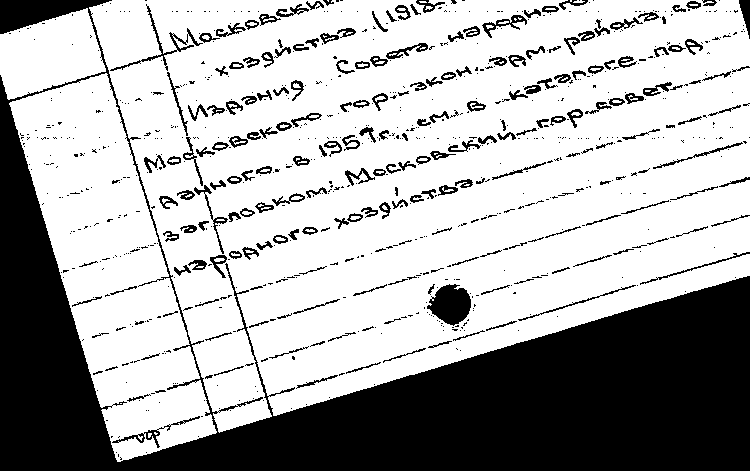 Московский
хозяйства (1918-
Издания Совета народного
Московского гор. экон. адм. района, соз
данного в 1957г., см. в каталоге под
заголовком: Московский гор. совет
народного хозяйства